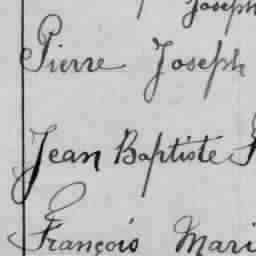 Joseph
Pierre Joseph
Jean Baptiste
François Mari